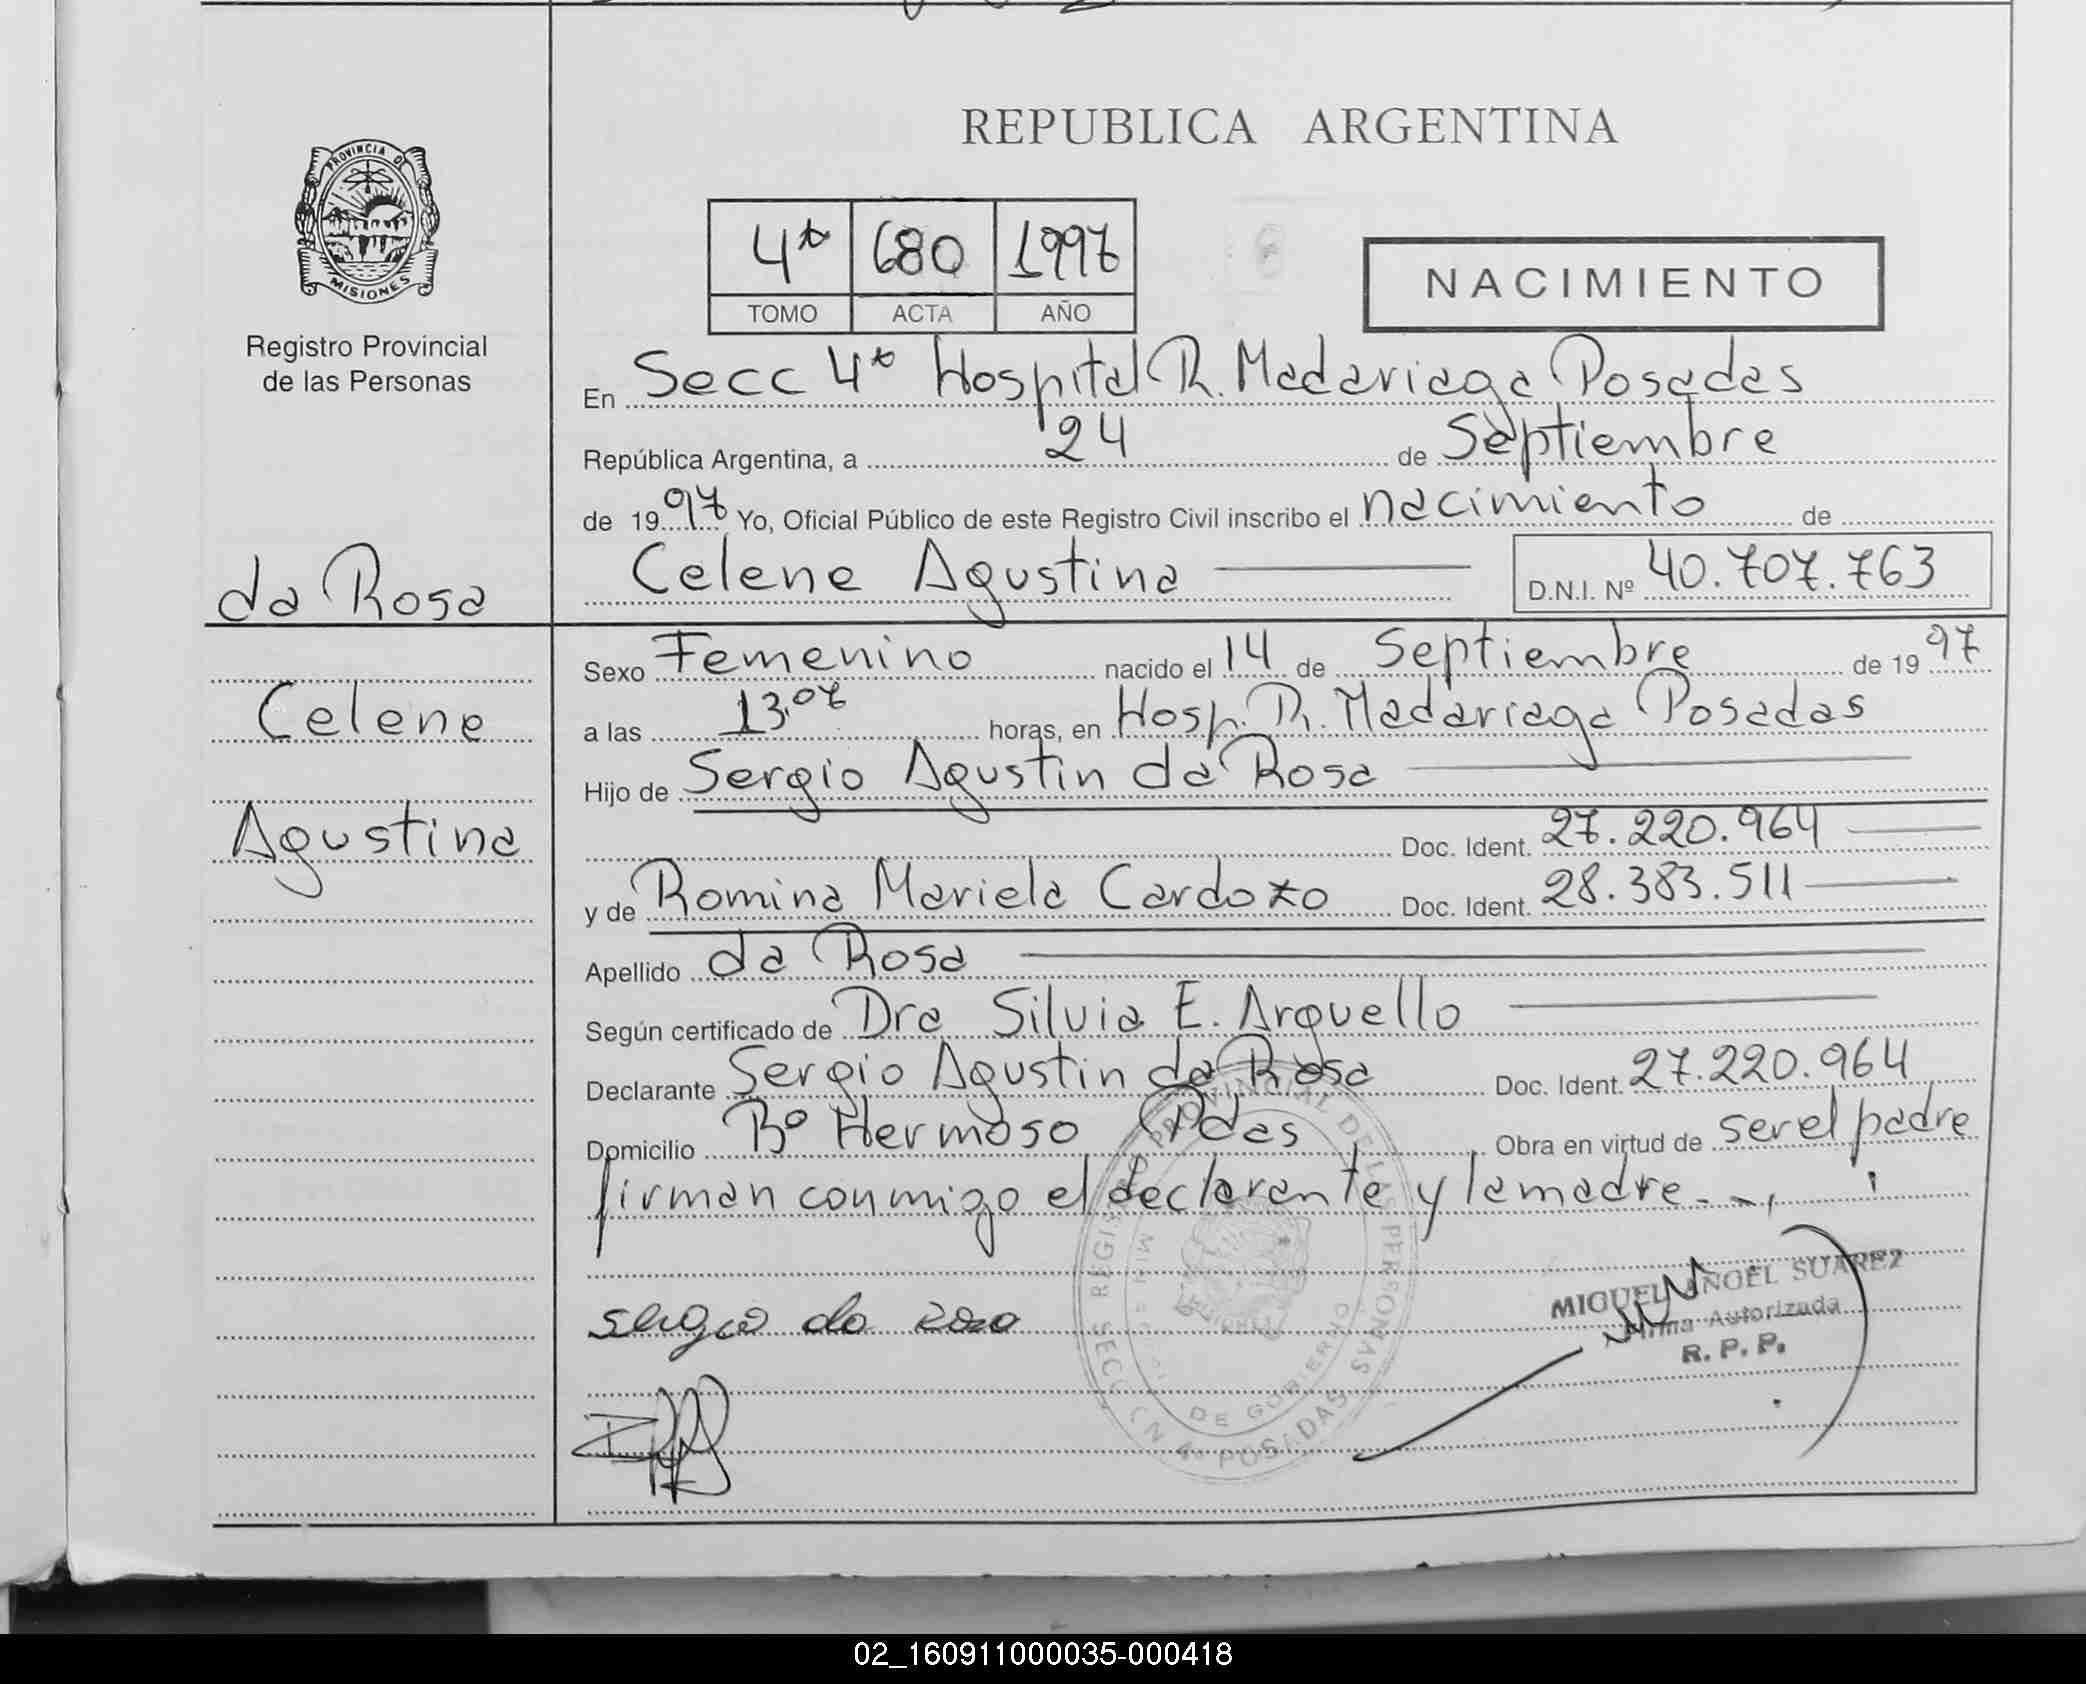 REPUBLICA ARGENTINA
PROVINCIA DE
MISIONES
Registro Provincial
de las Personas
4ta 680 1997
TOMO ACTA AÑO
NACIMIENTO
En Secc 4ta Hospital R. Madariaga Posadas
República Argentina, a 24 de Septiembre
de 1997 Yo, Oficial Público de este Registro Civil inscribo el nacimiento de
Celene Agustina D.N.I. Nº 40.707.763
da Rosa
Celene
Agustina
Sexo Femenino nacido el 14 de Septiembre de 1997
a las 13.07 horas, en Hosp. R. Madariaga Posadas
Hijo de Sergio Agustin da Rosa
Doc. Ident. 27.220.964
y de Romina Mariela Cardozo Doc. Ident. 28.383.511
Apellido da Rosa
Según certificado de Dra Silvia E. Arguello
Declarante Sergio Agustin da Rosa Doc. Ident. 27.220.964
Domicilio Bº Hermoso Pdas Obra en virtud de ser el padre
firman conmigo el declarante y la madre.-
sergio da rosa
REGISTRO PROVINCIAL DE LAS PERSONAS
DE GOBIERNO
SECCION 4ª POSADAS
MIGUEL ANGEL SUAREZ
Firma Autorizada
R. P. P.
02_160911000035-000418